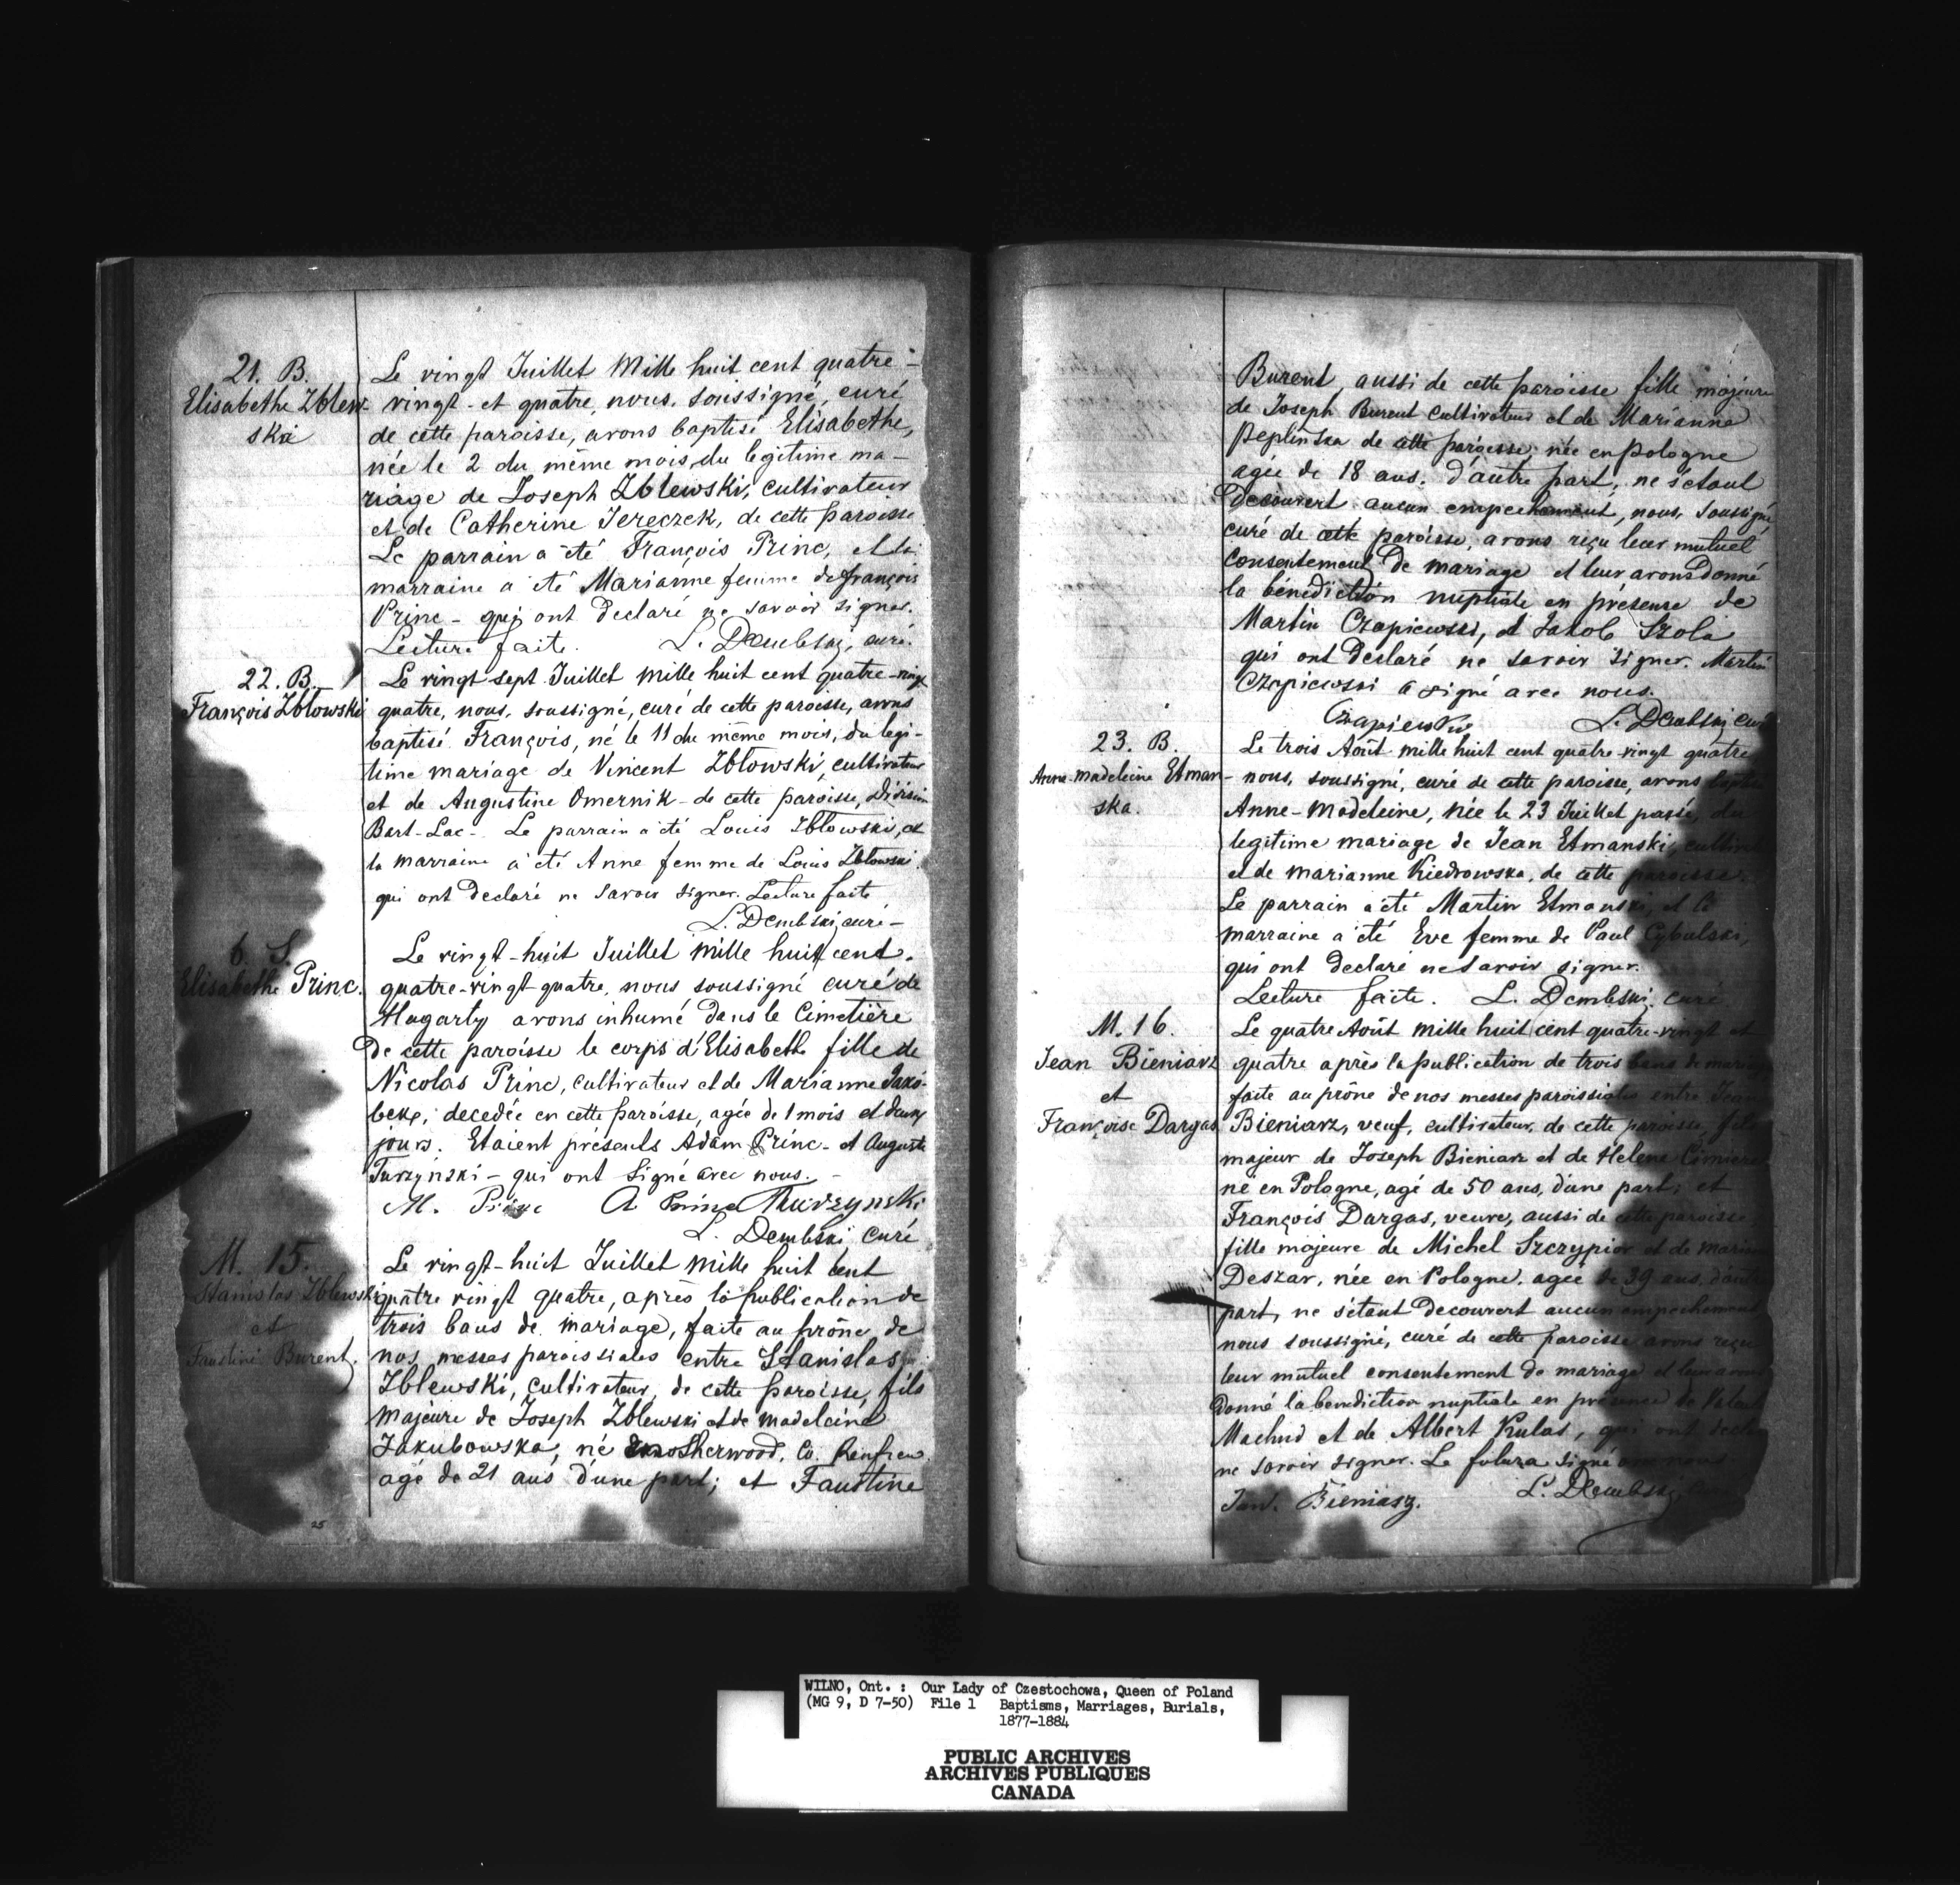 21. B.
Elisabethe Zblew-
ska
Le vingt Juillet Mille huit cent quatre-
vingt-et quatre, nous, soussigné, curé
de cette paroisse, avons baptisé Elisabethe,
née le 2 du même mois, du legitime ma-
riage de Joseph Zblewski, cultivateur
et de Catherine Jereczek, de cette paroisse
Le parrain a été François Princ, et la
marraine a été Marianne femme de François
Princ - qui ont declaré ne savoir signer.
Lecture faite. L. Dembski, curé.
22. B.
François Zblowski
Le vingt sept Juillet mille huit cent quatre-vingt
quatre, nous, soussigné, curé de cette paroisse, avons
baptisé François, né le 11 du même mois, du legi-
time mariage de Vincent Zblowski, cultivateur
et de Augustine Omernik - de cette paroisse, Division
Bart-Lac-. Le parrain a été Louis Zblowski, et
la marraine a été Anne femme de Louis Zblowski
qui ont declaré ne savoir signer. Lecture faite
L. Dembski, curé-
6. S.
Elisabethe Princ.
Le vingt-huit Juillet mille huit cent.
quatre-vingt-quatre, nous soussigné curé de
Hagarty avons inhumé dans le Cimetière
de cette paroisse le corps d'Elisabethe fille de
Nicolas Princ, cultivateur et de Marianne Jako-
beke, decedée en cette paroisse, agée de 1 mois et deux
jours. Etaient présents Adam Princ - et Auguste
Turzynski - qui ont signé avec nous. -
M. Princ A Princ Thurzynski
L. Dembski curé
M. 15.
Stanislas Zblewski
et
Faustine Burent.
Le vingt-huit Juillet mille huit cent
quatre vingt quatre, après la publication de
trois bans de mariage, faite au prône de
nos messes paroissiales entre Stanislas
Zblewski, cultivateur, de cette paroisse, fils
majeure de Joseph Zblewski et de Madeleine
Jakubowska, né Sherwood, Co. Renfrew
agé de 21 ans d'une part; et Faustine
25
Burent, aussi de cette paroisse fille majeure
de Joseph Burent cultivateur et de Marianne
Peplinska de cette paroisse, née en pologne
agée de 18 ans, d'autre part, ne s'etant
decouvert aucun empechement, nous, soussigné
curé de cette paroisse, avons reçu leur mutuel
consentement de mariage et leur avons donné
la bénédiction nuptiale en présense de
Martin Czapiewski, et Jakob Szola
qui ont declaré ne savoir signer. Martin
Czapiewski a signé avec nous.
Czapiewski L. Dembski curé
23. B.
Anne-madeleine Etman-
ska.
Le trois Août mille huit cent quatre-vingt quatre
nous, soussigné, curé de cette paroisse, avons baptisé
Anne-Madeleine, née le 23 Juillet passé, du
legitime mariage de Jean Etmanski, cultivat
et de marianne Kiedrowska, de cette paroisse.
Le parrain a été Martin Etmanski, et la
marraine a été Eve femme de Paul Cybulski,
qui ont declaré ne savoir signer.
Lecture faite. L. Dembski, curé
M. 16.
Jean Bieniarz
et
Françoise Dargas
Le quatre Août mille huit cent quatre-vingt et
quatre après la publication de trois bans de mariage
faite au prône de nos messes paroissiales entre Jean
Bieniarz, veuf, cultivateur, de cette paroisse, fils
majeur de Joseph Bieniarz et de Helene
né en Pologne, agé de 50 ans, d'une part; et
François Dargas, veuve, aussi de cette paroisse
fille majeure de Michel Szczypior et de
Deszar, née en Pologne, agée de 39 ans, d'autre
part, ne s'étant decouvert aucun empechement
nous soussigné, curé de cette paroisse avons reçu
leur mutuel consentement de mariage et leur avons
donné la benediction nuptiale en présence de
Machud et de Albert Kulas, qui ont declaré
ne savoir signer. Le futura signé avec nous
Jan. Bieniasz. L. Dembski
WILNO, Ont. : Our Lady of Czestochowa, Queen of Poland
(MG 9, D 7-50) File 1 Baptisms, Marriages, Burials,
1877-1884
PUBLIC ARCHIVES
ARCHIVES PUBLIQUES
CANADA